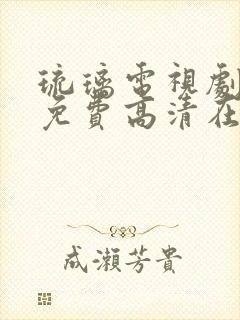 琉璃電視劇
免費高清在
成瀬芳貴